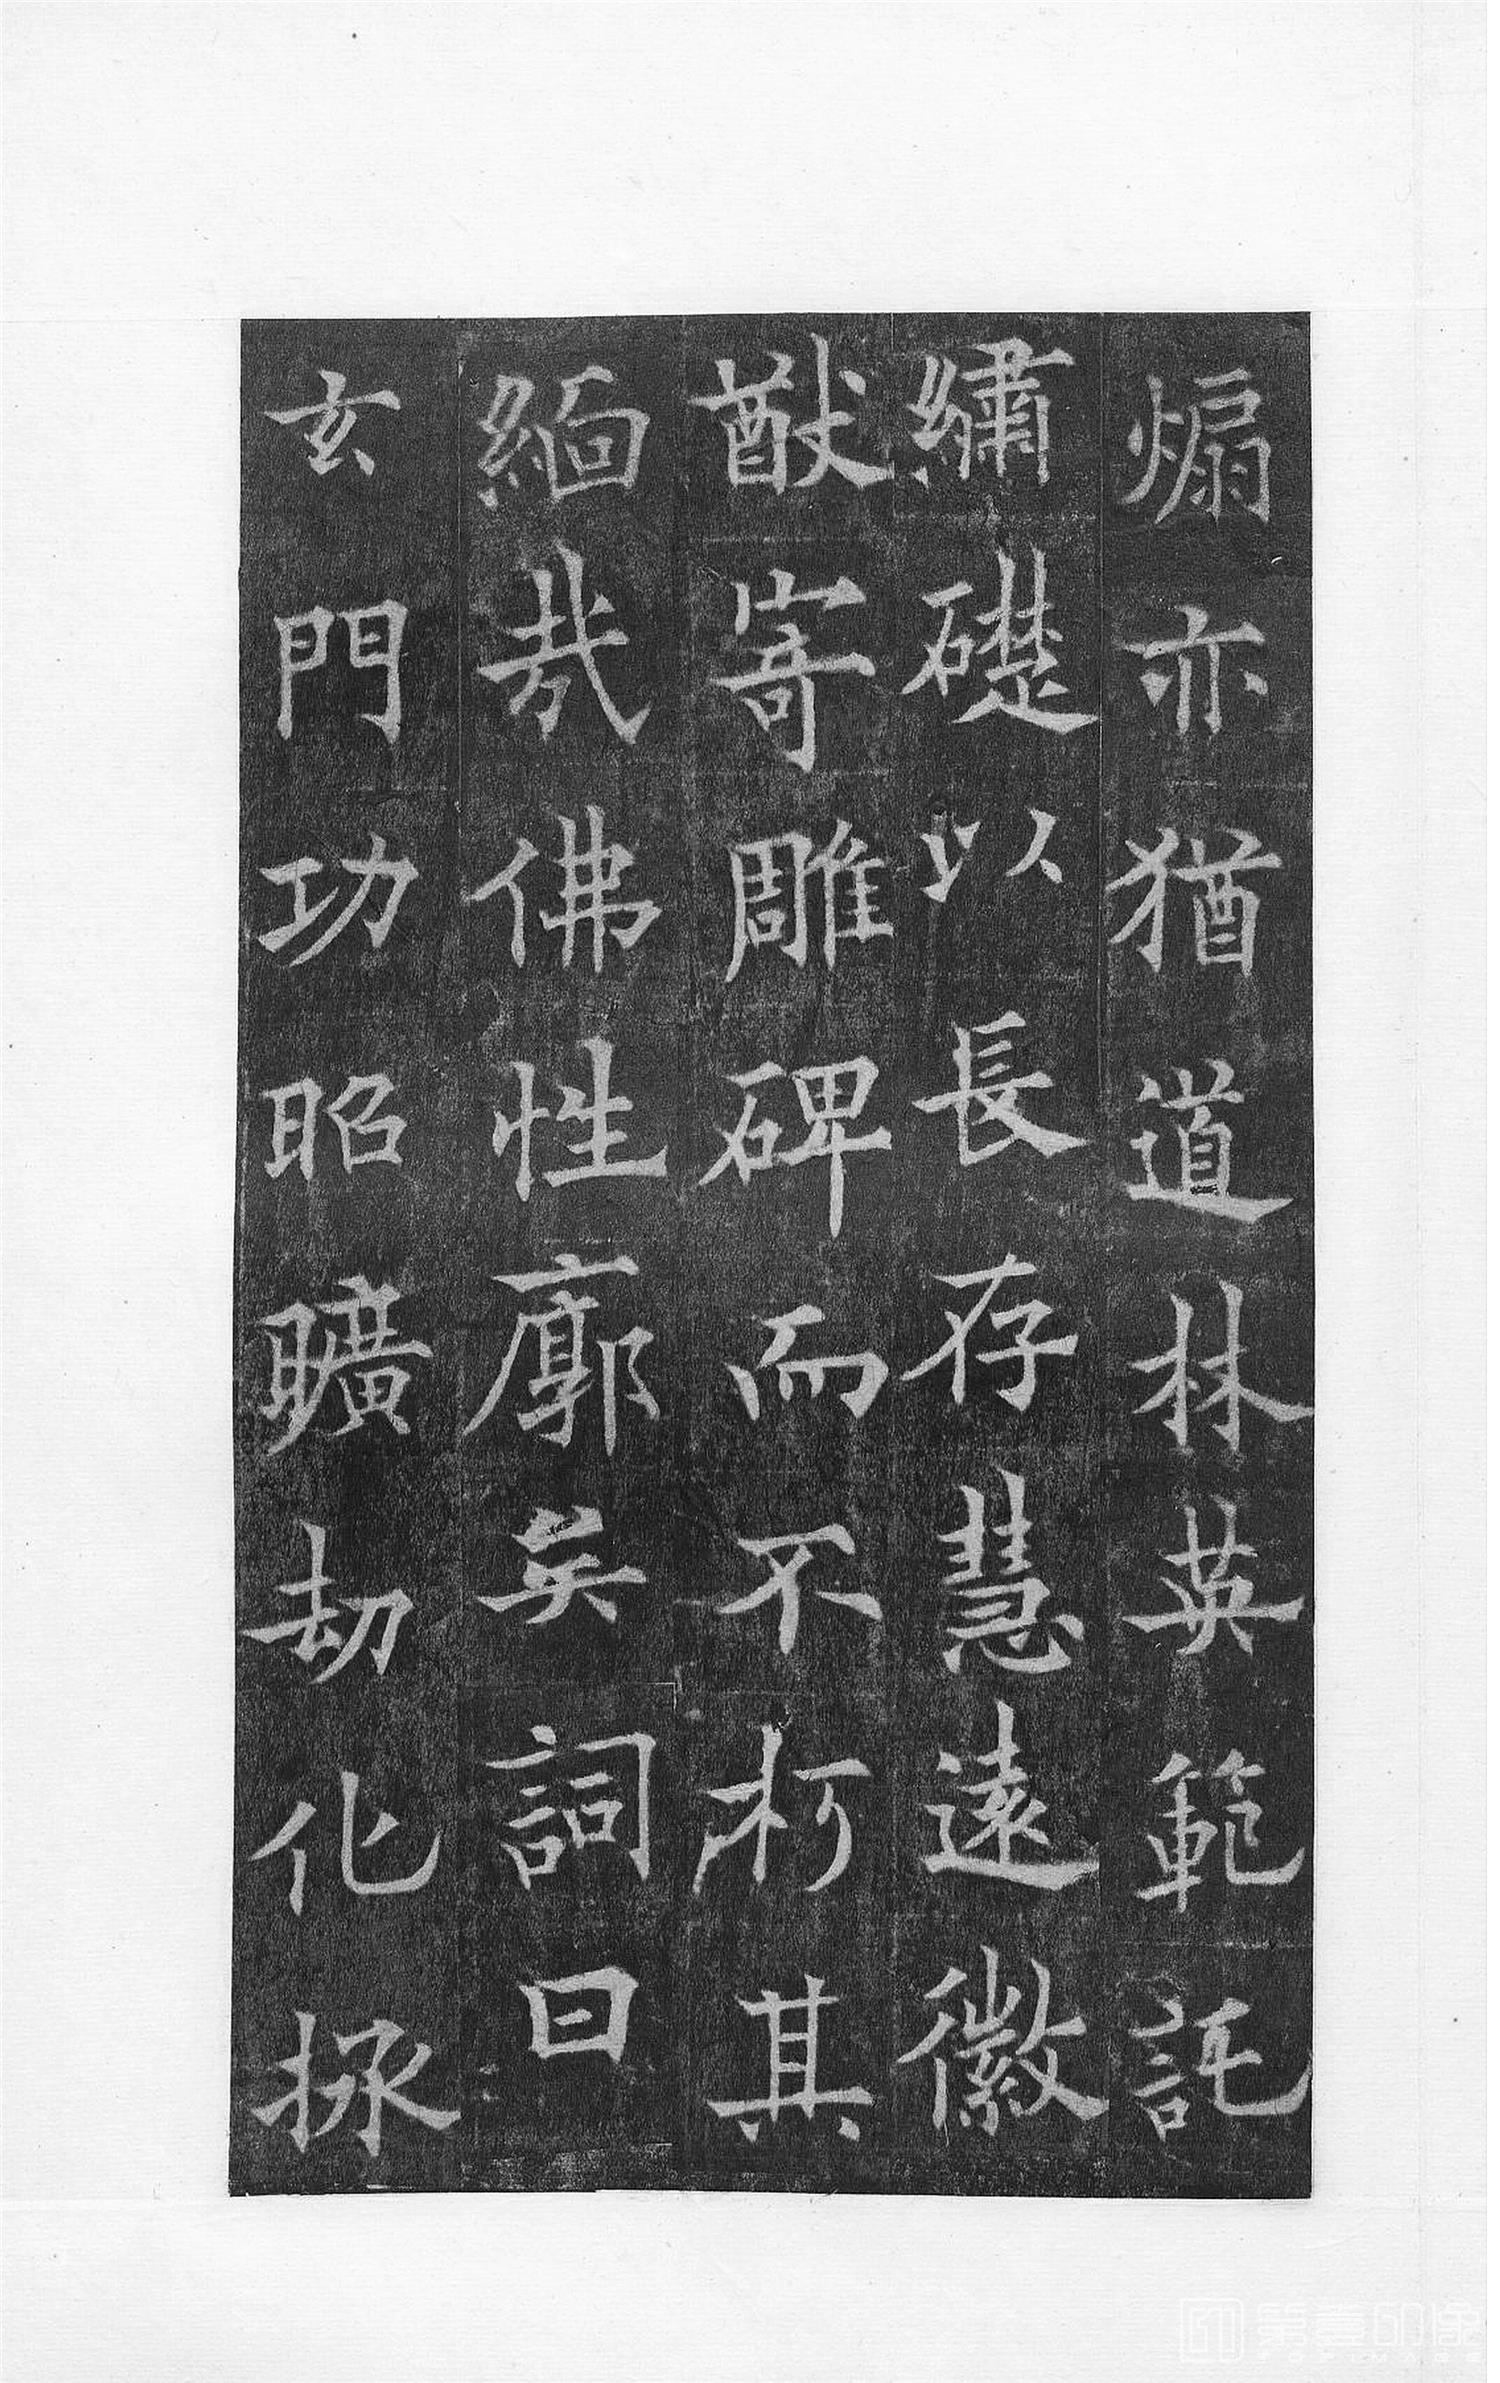 煽亦猶道林英範託
繡礎以長存慧遠徽
猷寄雕碑而不朽其
緬哉佛性廓矣詞曰
玄門功昭曠劫化拯